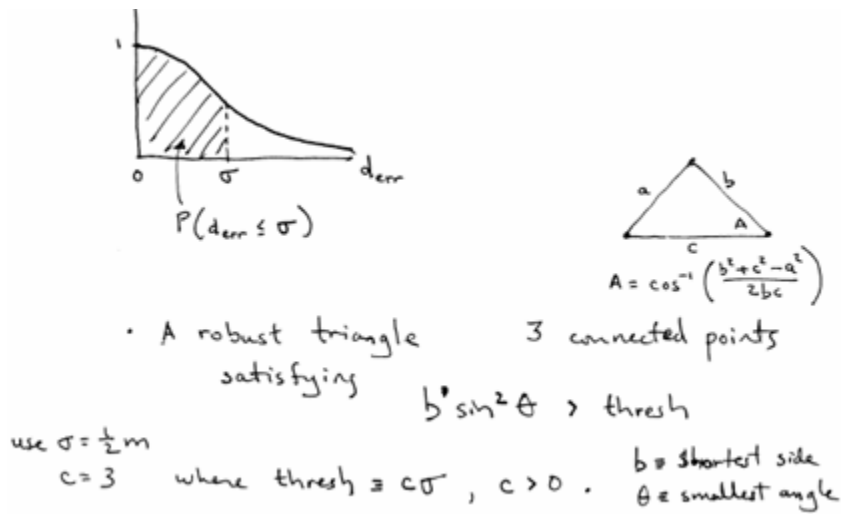 1
0 σ d_err
P(d_err ≤ σ)
a b
A
c
A = cos⁻¹ ( (b² + c² - a²) / 2bc )
• A robust triangle 3 connected points
satisfying
b sin² θ > thresh
use σ = ½ m
c = 3 where thresh ≡ cσ, c > 0.
b ≡ shortest side
θ ≡ smallest angle